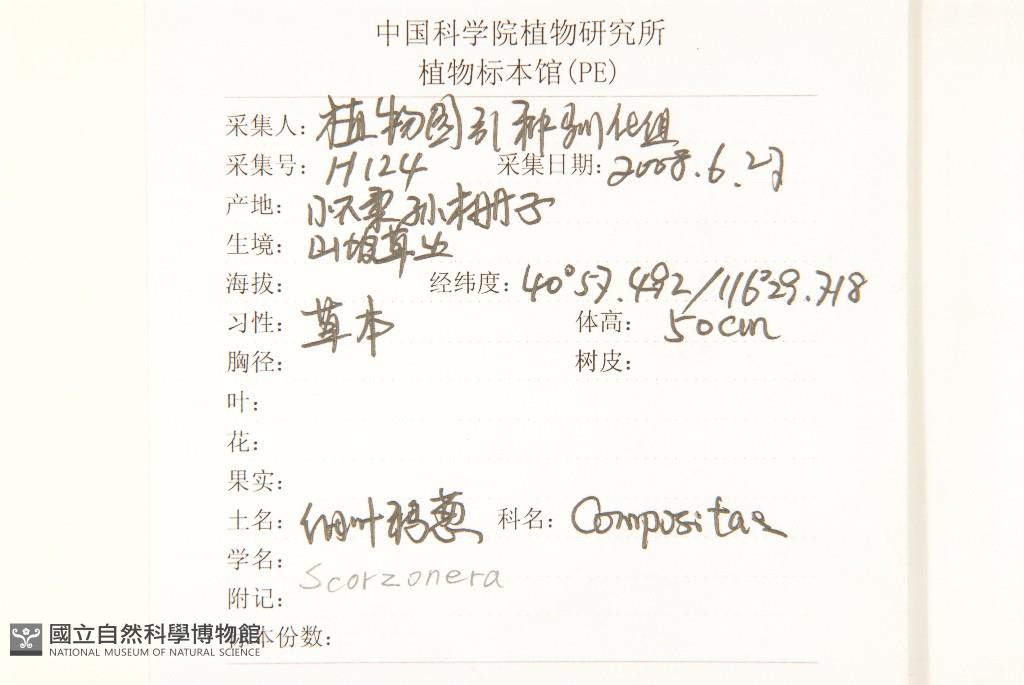 中国科学院植物研究所
植物标本馆(PE)
采集人: 植物园引种驯化组
采集号: H124 采集日期: 2008.6.27
产地: 孙栅子
生境: 山坡草丛
海拔: 经纬度: 40°57.492/116°29.718
习性: 草本 体高: 50cm
胸径: 树皮:
叶:
花:
果实:
土名: 细叶鸦葱 科名: Compositae
学名: Scorzonera
附记:
本份数:
國立自然科學博物館
NATIONAL MUSEUM OF NATURAL SCIENCE